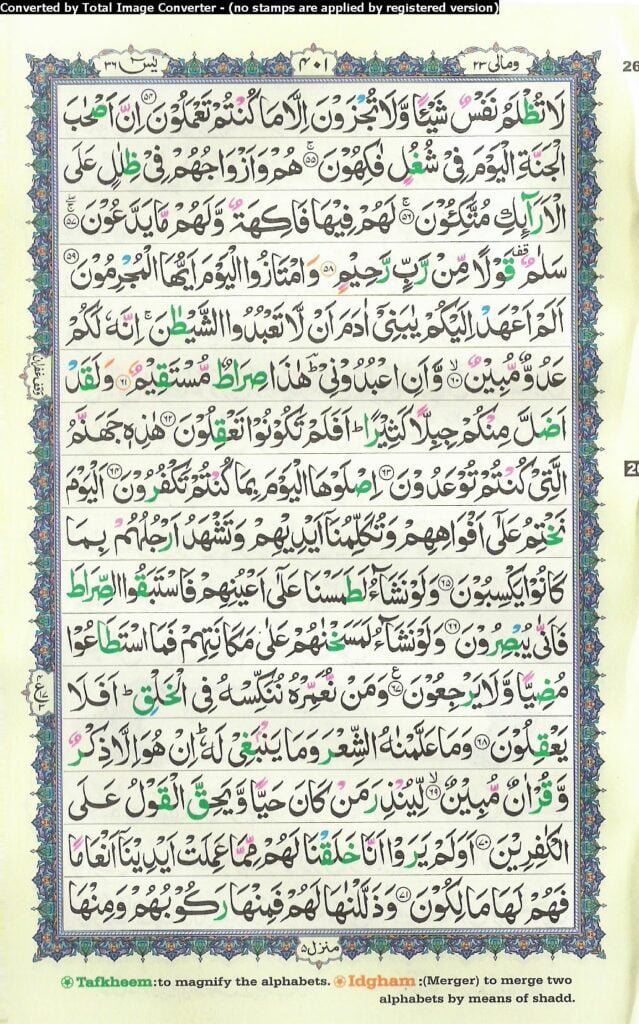 Converted by Total Image Converter - (no stamps are applied by registered version)
یٰسٓ ۳۶ ۴۰۱ ومالی ۲۳
26
لَا تُظْلَمُ نَفْسٌ شَيْـًٔا وَّلَا تُجْزَوْنَ اِلَّا مَا كُنْتُمْ تَعْمَلُوْنَ ۵۴ اِنَّ اَصْحٰبَ
الْجَنَّةِ الْيَوْمَ فِيْ شُغُلٍ فٰكِهُوْنَ ۵۵ هُمْ وَاَزْوَاجُهُمْ فِيْ ظِلٰلٍ عَلَى
الْاَرَآىِٕكِ مُتَّكِـُٔوْنَ ۵۶ لَهُمْ فِيْهَا فَاكِهَةٌ وَّلَهُمْ مَّا يَدَّعُوْنَ ۵۷
سَلٰمٌ قف قَوْلًا مِّنْ رَّبٍّ رَّحِيْمٍ ۵۸ وَامْتَازُوا الْيَوْمَ اَيُّهَا الْمُجْرِمُوْنَ ۵۹
اَلَمْ اَعْهَدْ اِلَيْكُمْ يٰبَنِيْٓ اٰدَمَ اَنْ لَّا تَعْبُدُوا الشَّيْطٰنَ ۚ اِنَّهٗ لَكُمْ
عَدُوٌّ مُّبِيْنٌ ۶۰ وَّاَنِ اعْبُدُوْنِيْ ؕ هٰذَا صِرَاطٌ مُّسْتَقِيْمٌ ۶۱ وَلَقَدْ
وقف غفران
اَضَلَّ مِنْكُمْ جِبِلًّا كَثِيْرًا ؕ اَفَلَمْ تَكُوْنُوْا تَعْقِلُوْنَ ۶۲ هٰذِهٖ جَهَنَّمُ
الَّتِيْ كُنْتُمْ تُوْعَدُوْنَ ۶۳ اِصْلَوْهَا الْيَوْمَ بِمَا كُنْتُمْ تَكْفُرُوْنَ ۶۴ اَلْيَوْمَ
نَخْتِمُ عَلٰٓى اَفْوَاهِهِمْ وَتُكَلِّمُنَآ اَيْدِيْهِمْ وَتَشْهَدُ اَرْجُلُهُمْ بِمَا
كَانُوْا يَكْسِبُوْنَ ۶۵ وَلَوْ نَشَآءُ لَطَمَسْنَا عَلٰٓى اَعْيُنِهِمْ فَاسْتَبَقُوا الصِّرَاطَ
فَاَنّٰى يُبْصِرُوْنَ ۶۶ وَلَوْ نَشَآءُ لَمَسَخْنٰهُمْ عَلٰى مَكَانَتِهِمْ فَمَا اسْتَطَاعُوْا
مُضِيًّا وَّلَا يَرْجِعُوْنَ ۶۷ ع وَمَنْ نُّعَمِّرْهُ نُنَكِّسْهُ فِي الْخَلْقِ ؕ اَفَلَا
يَعْقِلُوْنَ ۶۸ وَمَا عَلَّمْنٰهُ الشِّعْرَ وَمَا يَنْۢبَغِيْ لَهٗ ؕ اِنْ هُوَ اِلَّا ذِكْرٌ
وَّقُرْاٰنٌ مُّبِيْنٌ ۶۹ لِّيُنْذِرَ مَنْ كَانَ حَيًّا وَّيَحِقَّ الْقَوْلُ عَلَى
الْكٰفِرِيْنَ ۷۰ اَوَلَمْ يَرَوْا اَنَّا خَلَقْنَا لَهُمْ مِّمَّا عَمِلَتْ اَيْدِيْنَآ اَنْعَامًا
فَهُمْ لَهَا مَالِكُوْنَ ۷۱ وَذَلَّلْنٰهَا لَهُمْ فَمِنْهَا رَكُوْبُهُمْ وَمِنْهَا
منزل ۵
Tafkheem:to magnify the alphabets. Idgham :(Merger) to merge two
alphabets by means of shadd.